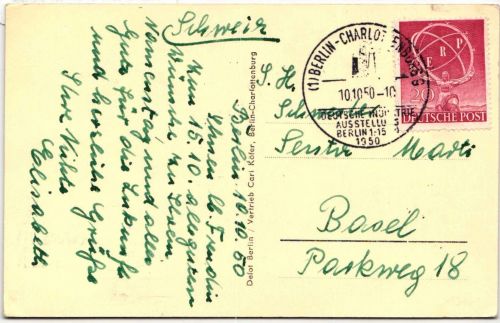 Schweiz
Berlin 10.10.50
Ihnen lb. Freundin
zum 15.10. alleguten
Wünsche zu Ihrem
Namenstag und alles
Gute für die Zukunft
und herzliche Grüße
Ihre Nichte
Elisabeth
Delot Berlin / Vertrieb Carl Köfer, Berlin-Charlottenburg
(1) BERLIN-CHARLOTTENBURG
10.10.50-10
DEUTSCHE INDUSTRIE
AUSSTELLUNG
BERLIN 1-15
1950
ERP
20
DEUTSCHE POST
S. H.
Schwester
Senta Marti
Basel
Parkweg 18